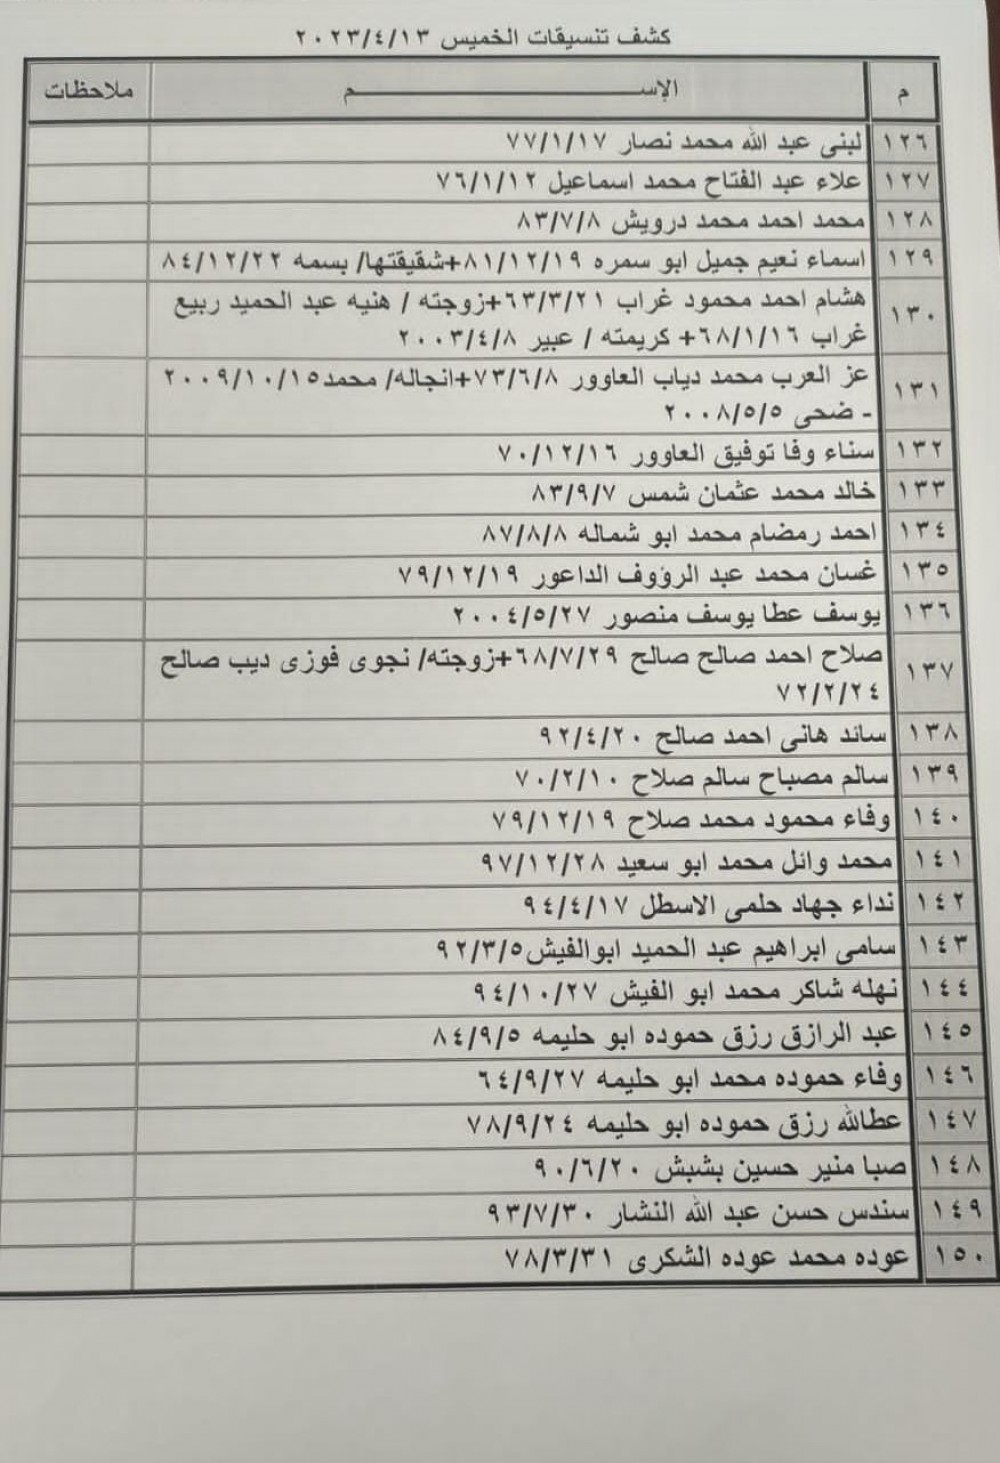 كشف تنسيقات الخميس ٢٠٢٣/٤/١٣
م الإســـم ملاحظات
١٢٦ لبنى عبد الله محمد نصار ٧٧/١/١٧
١٢٧ علاء عبد الفتاح محمد اسماعيل ٧٦/١/١٢
١٢٨ محمد احمد محمد درويش ٨٣/٧/٨
١٢٩ اسماء نعيم جميل ابو سمره ٨١/١٢/١٩+شقيقتها/ بسمه ٨٤/١٢/٢٢
١٣٠ هشام احمد محمود غراب ٦٣/٣/٢١+زوجته / هنيه عبد الحميد ربيع
غراب ٦٨/١/١٦+ كريمته / عبير ٢٠٠٣/٤/٨
١٣١ عز العرب محمد دياب العاوور ٧٣/٦/٨+انجاله/ محمد٢٠٠٩/١٠/١٥
- ضحى ٢٠٠٨/٥/٥
١٣٢ سناء وفا توفيق العاوور ٧٠/١٢/١٦
١٣٣ خالد محمد عثمان شمس ٨٣/٩/٧
١٣٤ احمد رمضام محمد ابو شماله ٨٧/٨/٨
١٣٥ غسان محمد عبد الرؤوف الداعور ٧٩/١٢/١٩
١٣٦ يوسف عطا يوسف منصور ٢٠٠٤/٥/٢٧
١٣٧ صلاح احمد صالح صالح ٦٨/٧/٢٩+زوجته/ نجوى فوزى ديب صالح
٧٢/٢/٢٤
١٣٨ سائد هانى احمد صالح ٩٢/٤/٢٠
١٣٩ سالم مصباح سالم صلاح ٧٠/٢/١٠
١٤٠ وفاء محمود محمد صلاح ٧٩/١٢/١٩
١٤١ محمد وائل محمد ابو سعيد ٩٧/١٢/٢٨
١٤٢ نداء جهاد حلمى الاسطل ٩٤/٤/١٧
١٤٣ سامى ابراهيم عبد الحميد ابوالفيش٩٢/٣/٥
١٤٤ نهله شاكر محمد ابو الفيش ٩٤/١٠/٢٧
١٤٥ عبد الرازق رزق حموده ابو حليمه ٨٤/٩/٥
١٤٦ وفاء حموده محمد ابو حليمه ٦٤/٩/٢٧
١٤٧ عطالله رزق حموده ابو حليمه ٧٨/٩/٢٤
١٤٨ صبا منير حسين بشبش ٩٠/٦/٢٠
١٤٩ سندس حسن عبد الله النشار ٩٣/٧/٣٠
١٥٠ عوده محمد عوده الشكرى ٧٨/٣/٣١